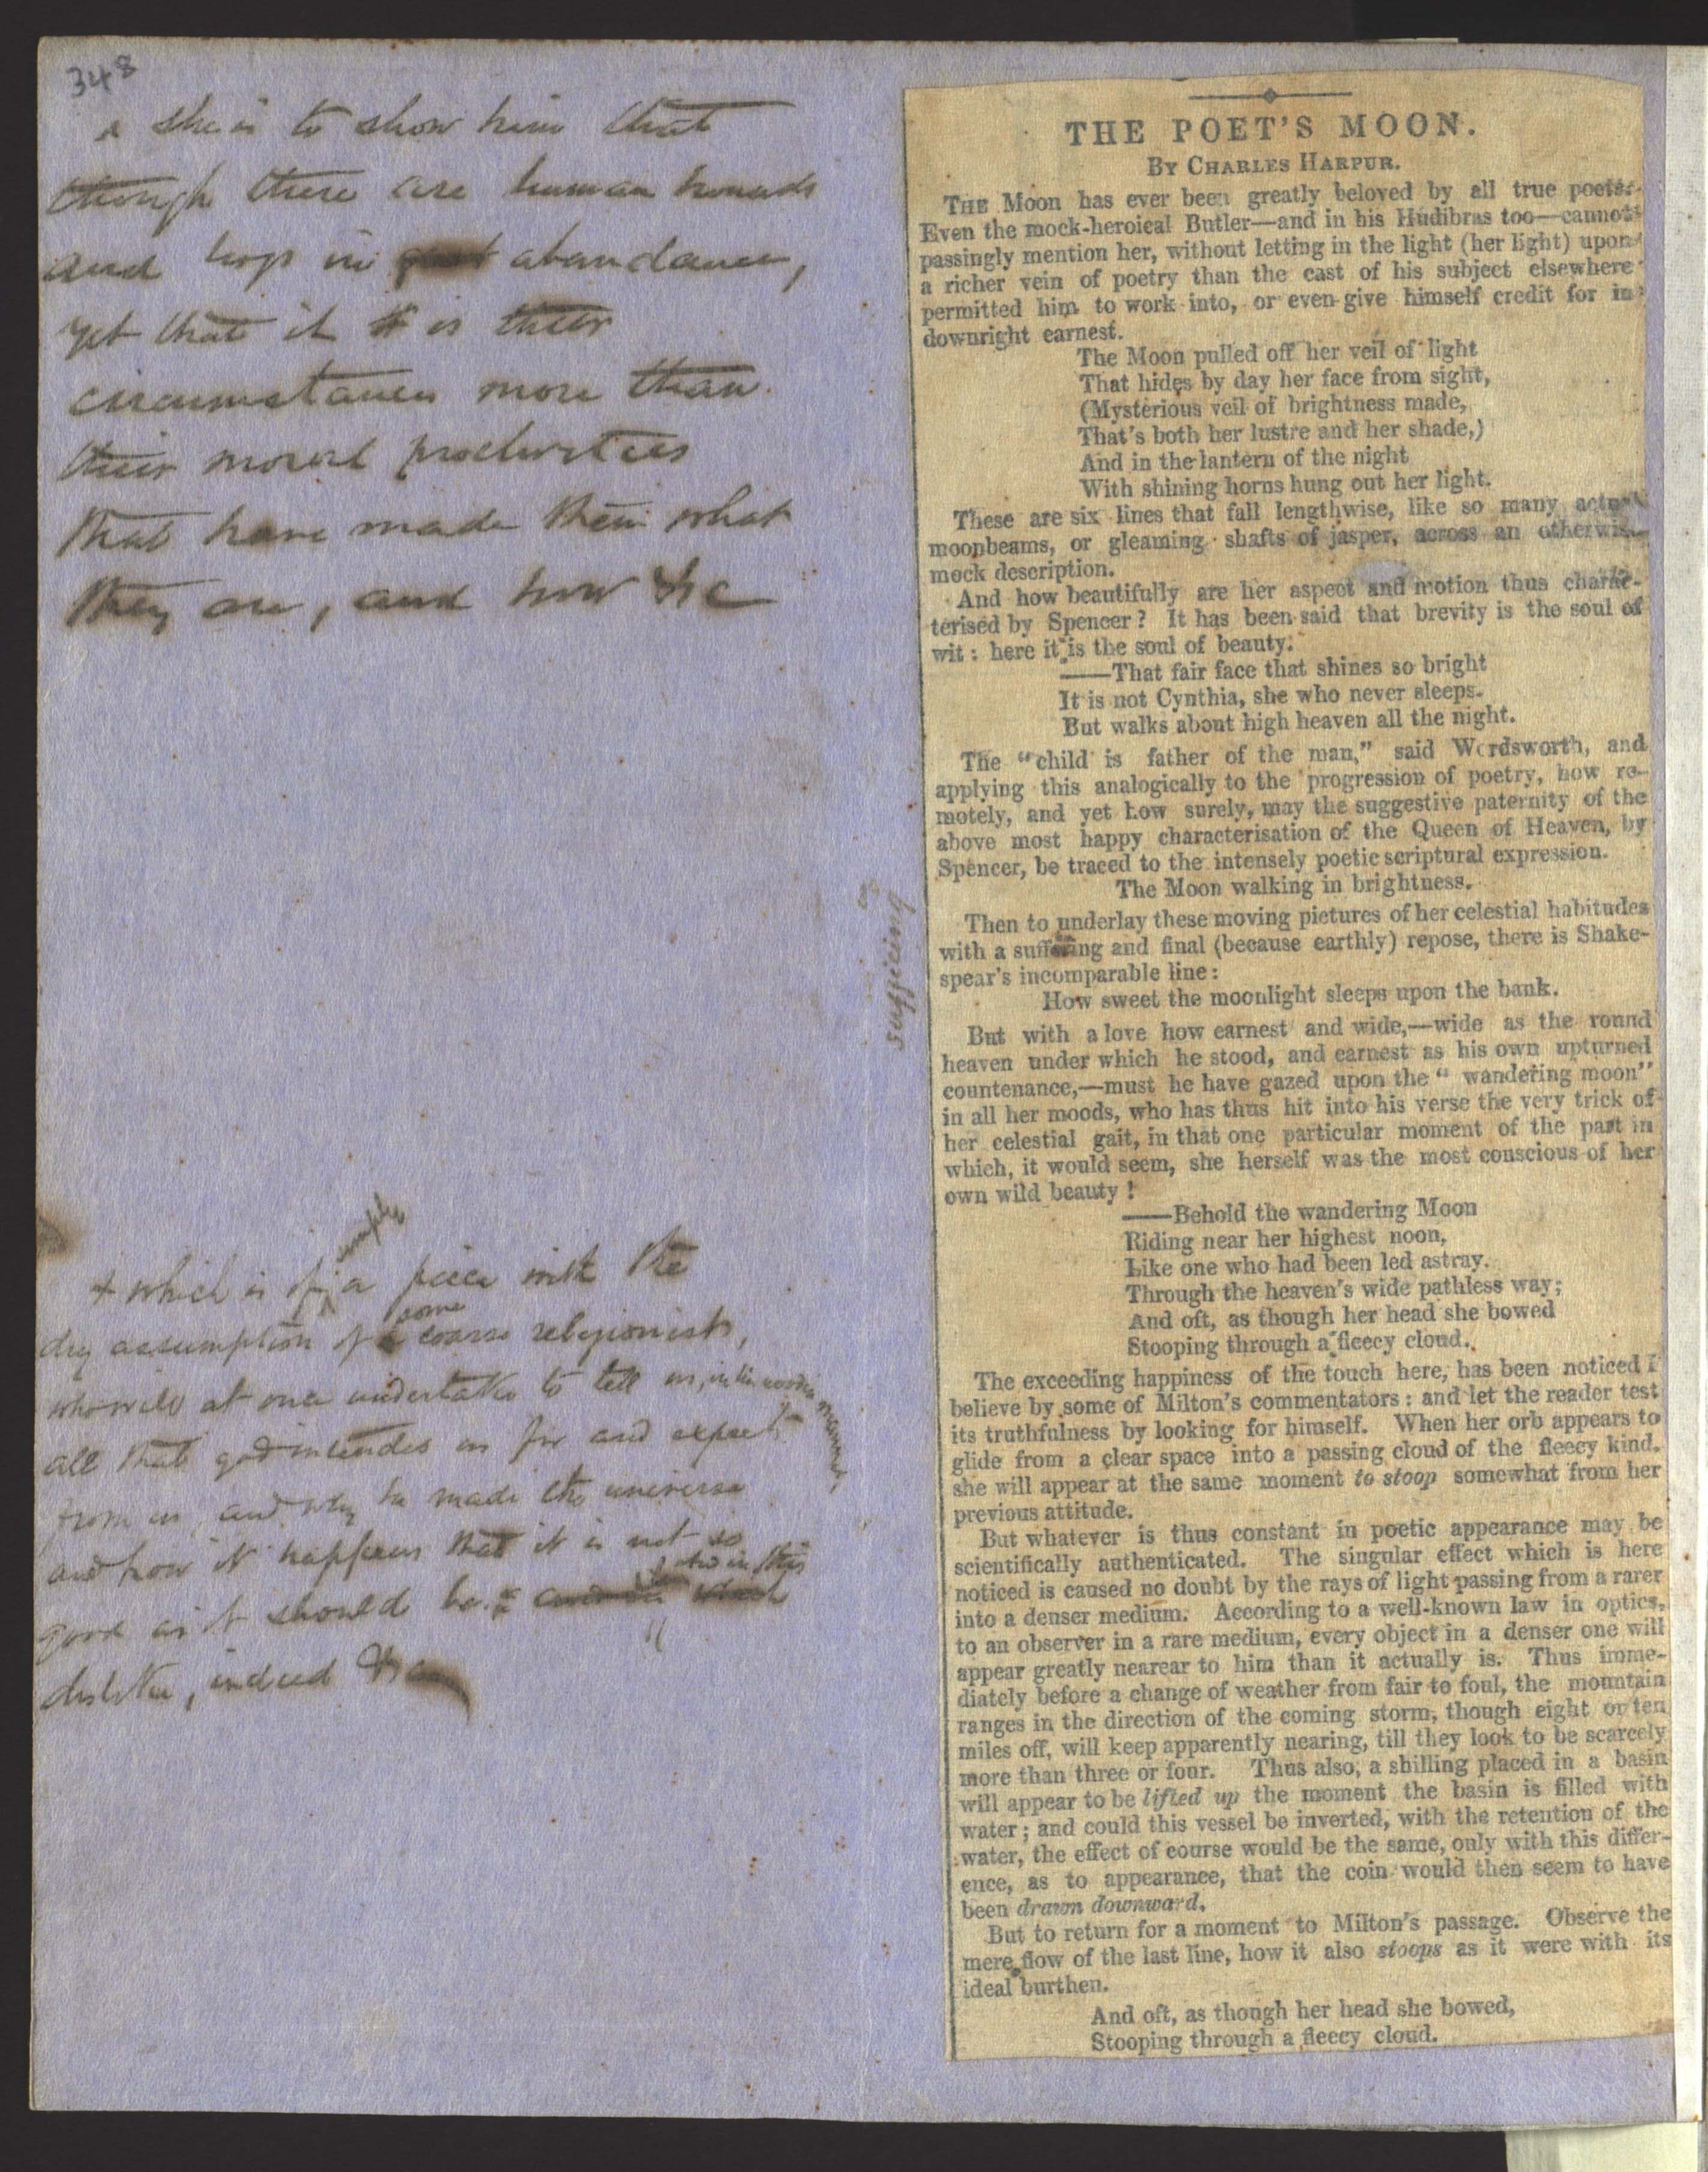 348
she is to show him that
though there are human hounds
and hogs in great abundance,
yet that it is their
circumstances more than
their moral proclivities
that have made them what
they are, and how &c
simply
+ which is of a piece with the
some
dry assumption of coarse religionists,
who will at once undertake to tell us, in his
manner,
all that god intended us for and expects
from us, and why he made the universe
and how it happens that it is not so
good as it should be.
dislike, indeed &c
sufficing
THE POET'S MOON.
BY CHARLES HARPUR.
THE Moon has ever been greatly beloved by all true poets.
Even the mock-heroical Butler—and in his Hudibras too—cannot
passingly mention her, without letting in the light (her light) upon
a richer vein of poetry than the cast of his subject elsewhere
permitted him to work into, or even give himself credit for in
downright earnest.
The Moon pulled off her veil of light
That hides by day her face from sight,
(Mysterious veil of brightness made,
That's both her lustre and her shade,)
And in the lantern of the night
With shining horns hung out her light.
These are six lines that fall lengthwise, like so many actual
moonbeams, or gleaming shafts of jasper, across an otherwise
mock description.
And how beautifully are her aspect and motion thus charac-
terised by Spencer? It has been said that brevity is the soul of
wit: here it is the soul of beauty.
——That fair face that shines so bright
It is not Cynthia, she who never sleeps.
But walks about high heaven all the night.
The "child is father of the man," said Wordsworth, and
applying this analogically to the progression of poetry, how re-
motely, and yet how surely, may the suggestive paternity of the
above most happy characterisation of the Queen of Heaven, by
Spencer, be traced to the intensely poetic scriptural expression.
The Moon walking in brightness.
Then to underlay these moving pictures of her celestial habitudes
with a suffering and final (because earthly) repose, there is Shake-
spear's incomparable line:
How sweet the moonlight sleeps upon the bank.
But with a love how earnest and wide,—wide as the round
heaven under which he stood, and earnest as his own upturned
countenance,—must he have gazed upon the "wandering moon"
in all her moods, who has thus hit into his verse the very trick of
her celestial gait, in that one particular moment of the past in
which, it would seem, she herself was the most conscious of her
own wild beauty!
——Behold the wandering Moon
Riding near her highest noon,
Like one who had been led astray.
Through the heaven's wide pathless way;
And oft, as though her head she bowed
Stooping through a fleecy cloud.
The exceeding happiness of the touch here, has been noticed I
believe by some of Milton's commentators: and let the reader test
its truthfulness by looking for himself. When her orb appears to
glide from a clear space into a passing cloud of the fleecy kind.
she will appear at the same moment to stoop somewhat from her
previous attitude.
But whatever is thus constant in poetic appearance may be
scientifically authenticated. The singular effect which is here
noticed is caused no doubt by the rays of light passing from a rarer
into a denser medium. According to a well-known law in optics,
to an observer in a rare medium, every object in a denser one will
appear greatly nearear to him than it actually is. Thus imme-
diately before a change of weather from fair to foul, the mountain
ranges in the direction of the coming storm, though eight or ten
miles off, will keep apparently nearing, till they look to be scarcely
more than three or four. Thus also, a shilling placed in a basin
will appear to be lifted up the moment the basin is filled with
water; and could this vessel be inverted, with the retention of the
water, the effect of course would be the same, only with this differ-
ence, as to appearance, that the coin would then seem to have
been drawn downward.
But to return for a moment to Milton's passage. Observe the
mere flow of the last line, how it also stoops as it were with its
ideal burthen.
And oft, as though her head she bowed,
Stooping through a fleecy cloud.